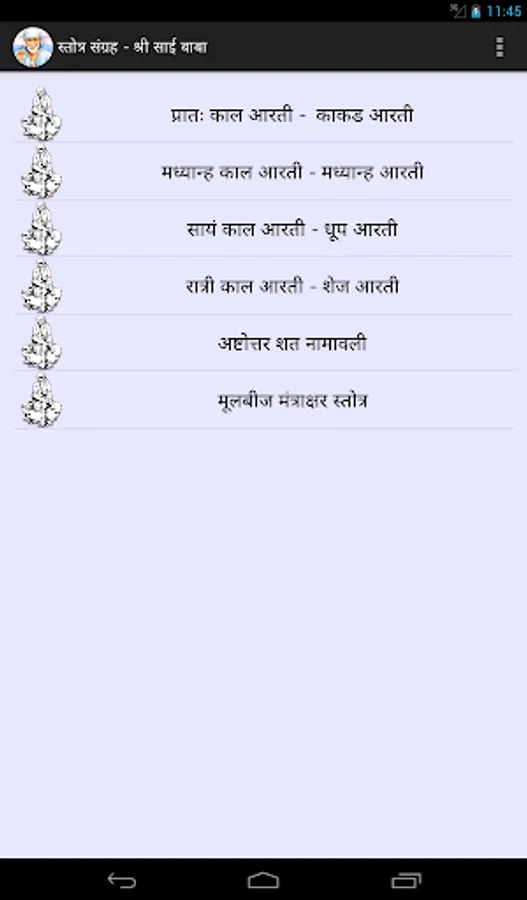 11:45
स्तोत्र संग्रह - श्री साई बाबा
प्रातः काल आरती - काकड आरती
मध्यान्ह काल आरती - मध्यान्ह आरती
सायं काल आरती - धूप आरती
रात्री काल आरती - शेज आरती
अष्टोत्तर शत नामावली
मूलबीज मंत्राक्षर स्तोत्र